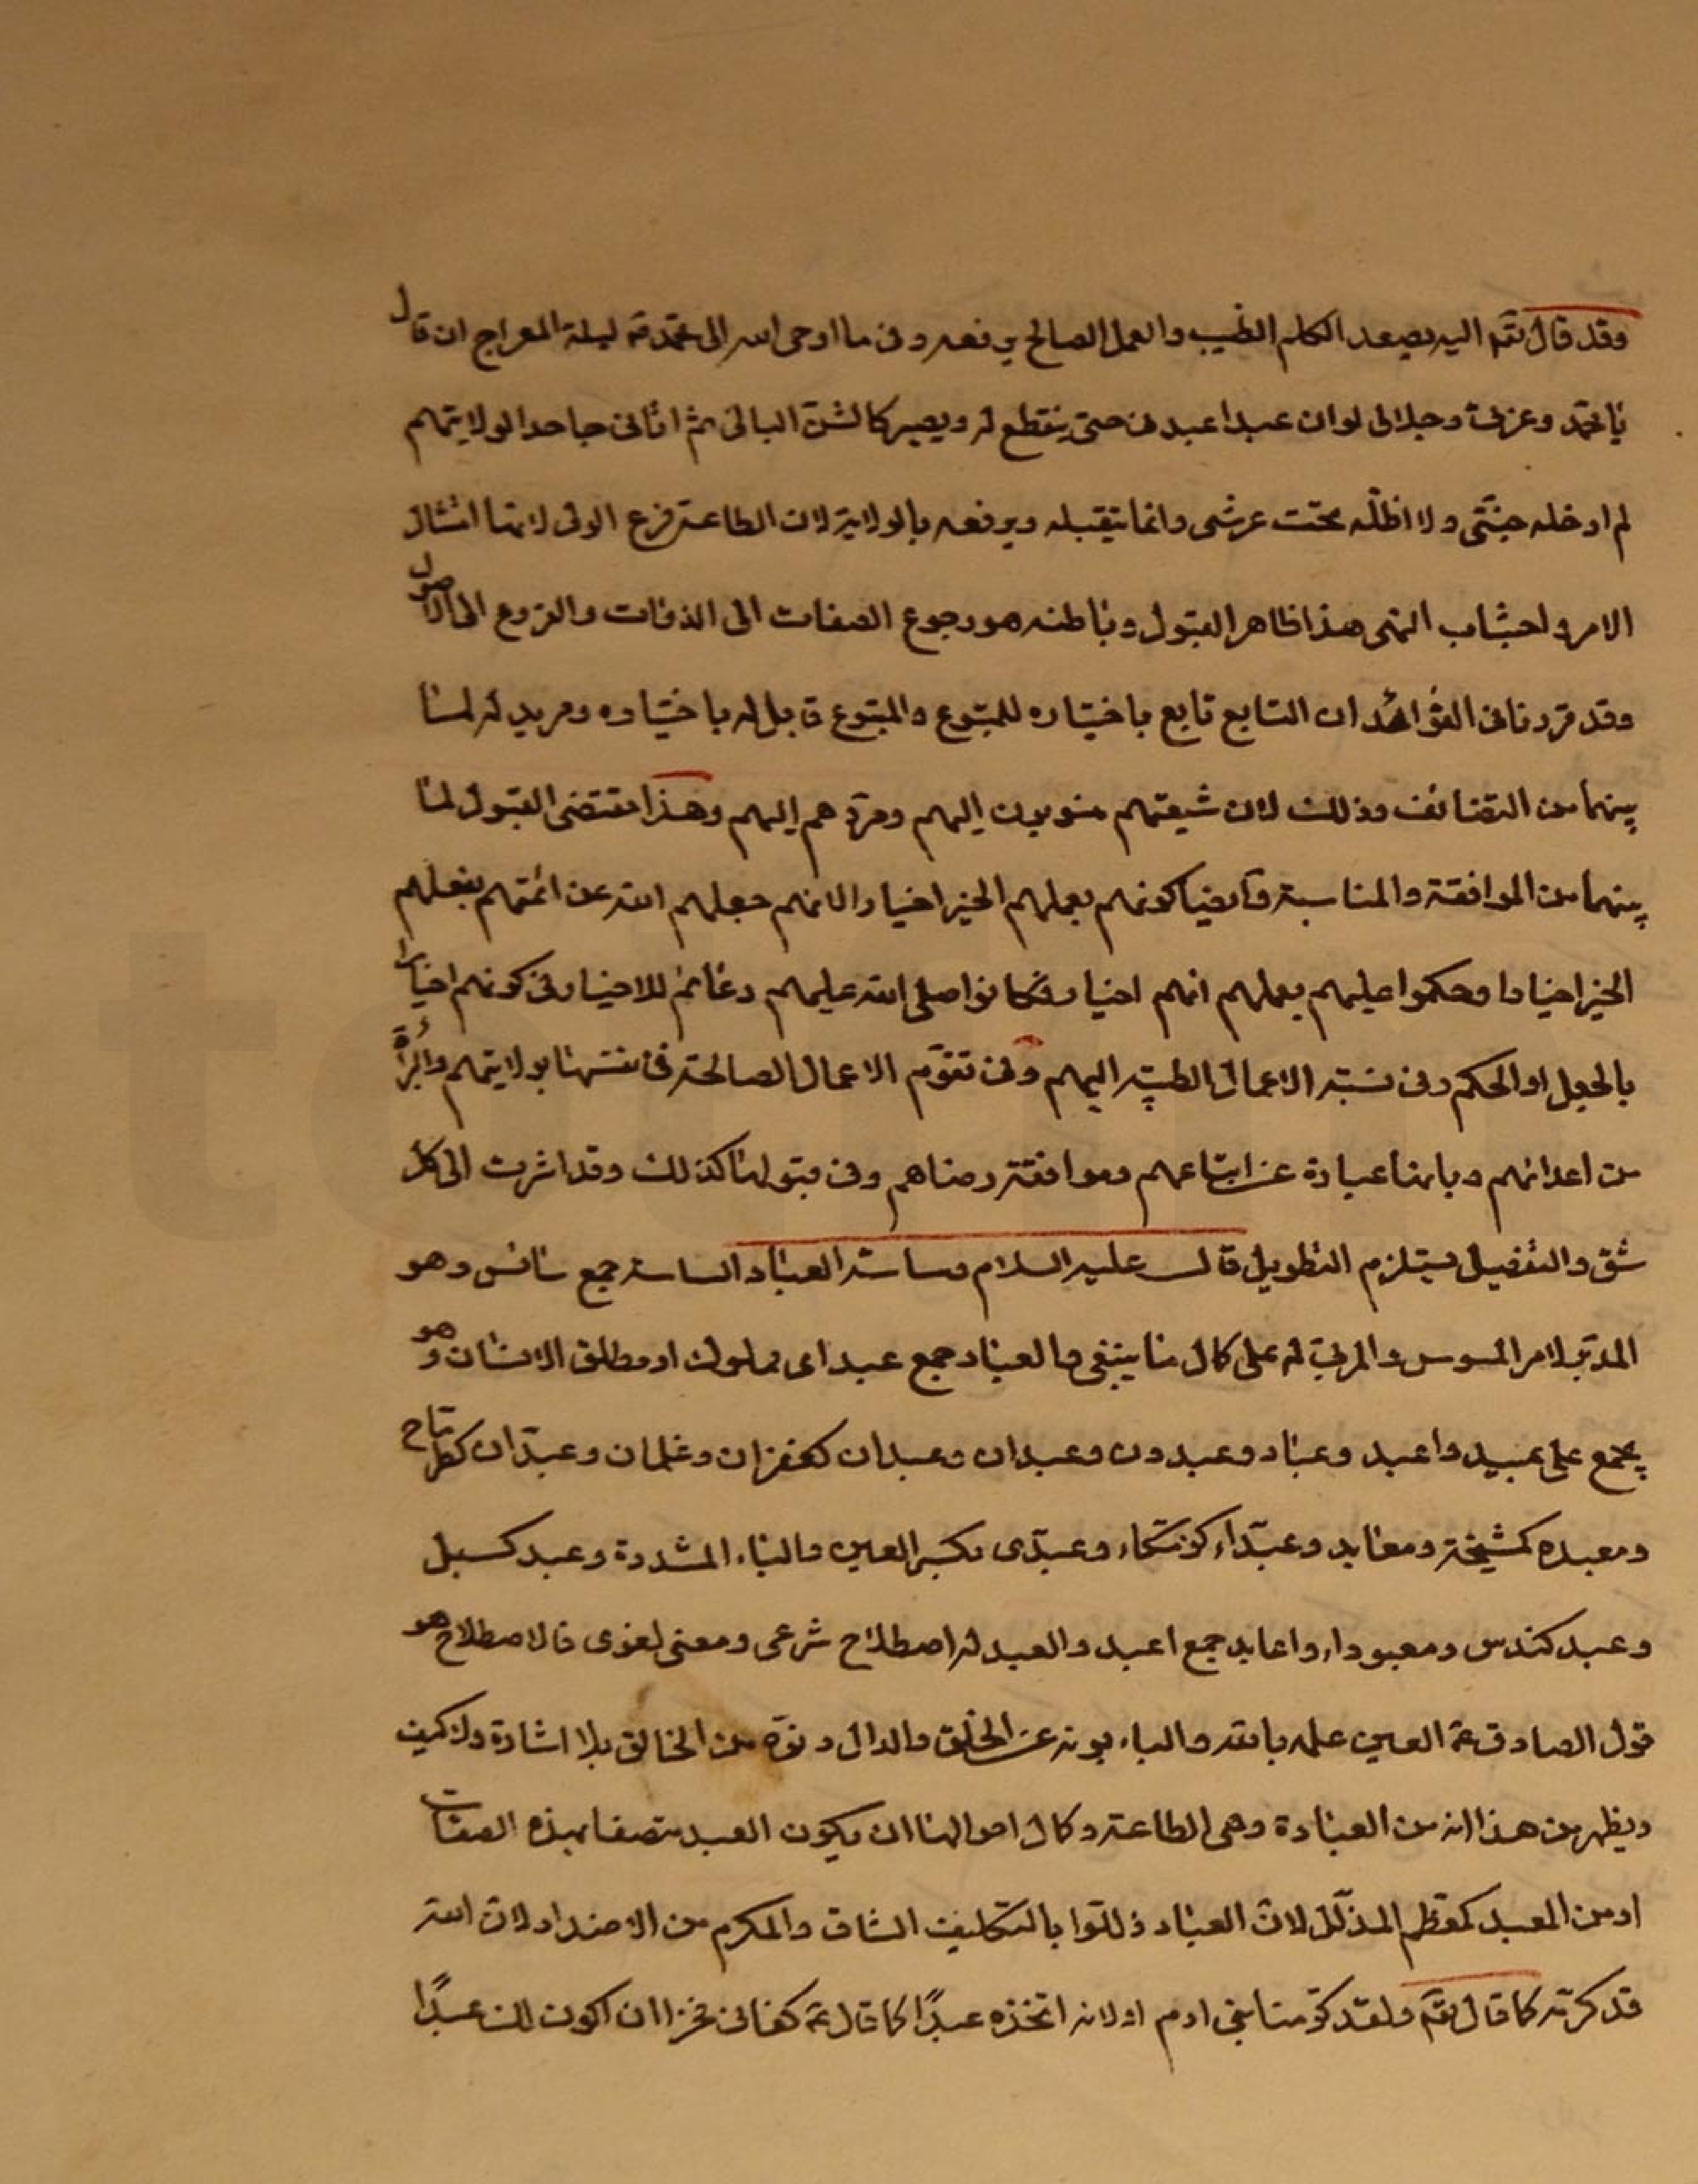 وقد قال تعم اليه يصعد الكلم الطيب والعمل الصالح يرفعه وفى ما اوحى الله الى محمد ليلة المعراج ان قال
يا محمد وعزتى وجلالى لو ان عبدا عبدنى حتى ينقطع او ويصير كالشن البالى ثم اتانى جاحدا لولايتهم
لم ادخله جنتى ولا اظله تحت عرشى وانما يتقبله ويرفعه بالولاية لان الطاعة فرع الولى لانها امتثال
الامر واجتناب النهى هذا ظاهر القبول وباطنه هو رجوع الصفات الى الذوات والفروع الى الاصول
وقد قررنا فى الفوائد ان التابع تابع باختياره للمتبوع والمتبوع قابل له باختياره ومريد له لما
بينهما من التضائف وذلك لان شيعتهم منسوبون اليهم ومردهم اليهم وهذا مقتضى القبول لما
بينهما من الموافقة والمناسبة وايضا كونهم بعملهم الخير اخيارا لانهم جعلهم الله عن ائمتهم بفعلهم
الخير اخيارا وحكموا عليهم بعملهم انهم اخيار فكانوا صلى الله عليهم دعائم للاخيار فى كونهم اخيارا
بالجعل او الحكم وفى نسبة الاعمال الطيبة اليهم وفى تقوم الاعمال الصالحة فى نفسها بولايتهم والبراءة
من اعدائهم وبانها عبارة عن اتباعهم وموافقة رضاهم وفى قبولها كذلك وقد اشرت الى كل
شق والتفصيل يستلزم التطويل قال عليه السلام وساسة العباد الساسة جمع سائس وهو
المدبر لامر المسوس والمربى له على كمال ما ينبغى والعباد جمع عبد اى مملوك او مطلق الانسان وهو
يجمع على عبيد واعبد وعباد وعبدون وعبدان وعبدان كغفران وغلمان وعبدان كطرماح
ومعبده كمشيخة ومعابد وعبداء كزمكاء وعبدى بكسر العين والباء المشددة وعبد كسبل
وعبد كندس ومعبوداء واعابد جمع اعبد والعبد له اصطلاح شرعى ومعنى لغوى فالاصطلاح هو
قول الصادق ع العين علمه بالله والباء بونه عن الخلق والدال دنوه من الخالق بلا اشارة ولا كيف
ويظهر من هذا انه من العبادة وهى الطاعة وكمال احوالها ان يكون العبد متصفا بهذه الصفات
او من المعبد كمعظم المذلل لان العباد ذللوا بالتكليف الشاق والمكرم من الاضداد لان الله
قد كرمه كما قال تعم ولقد كرمنا بنى ادم او لانه اتخذه عبدًا كما قال ع كفانى فخرا ان اكون لك عبدًا